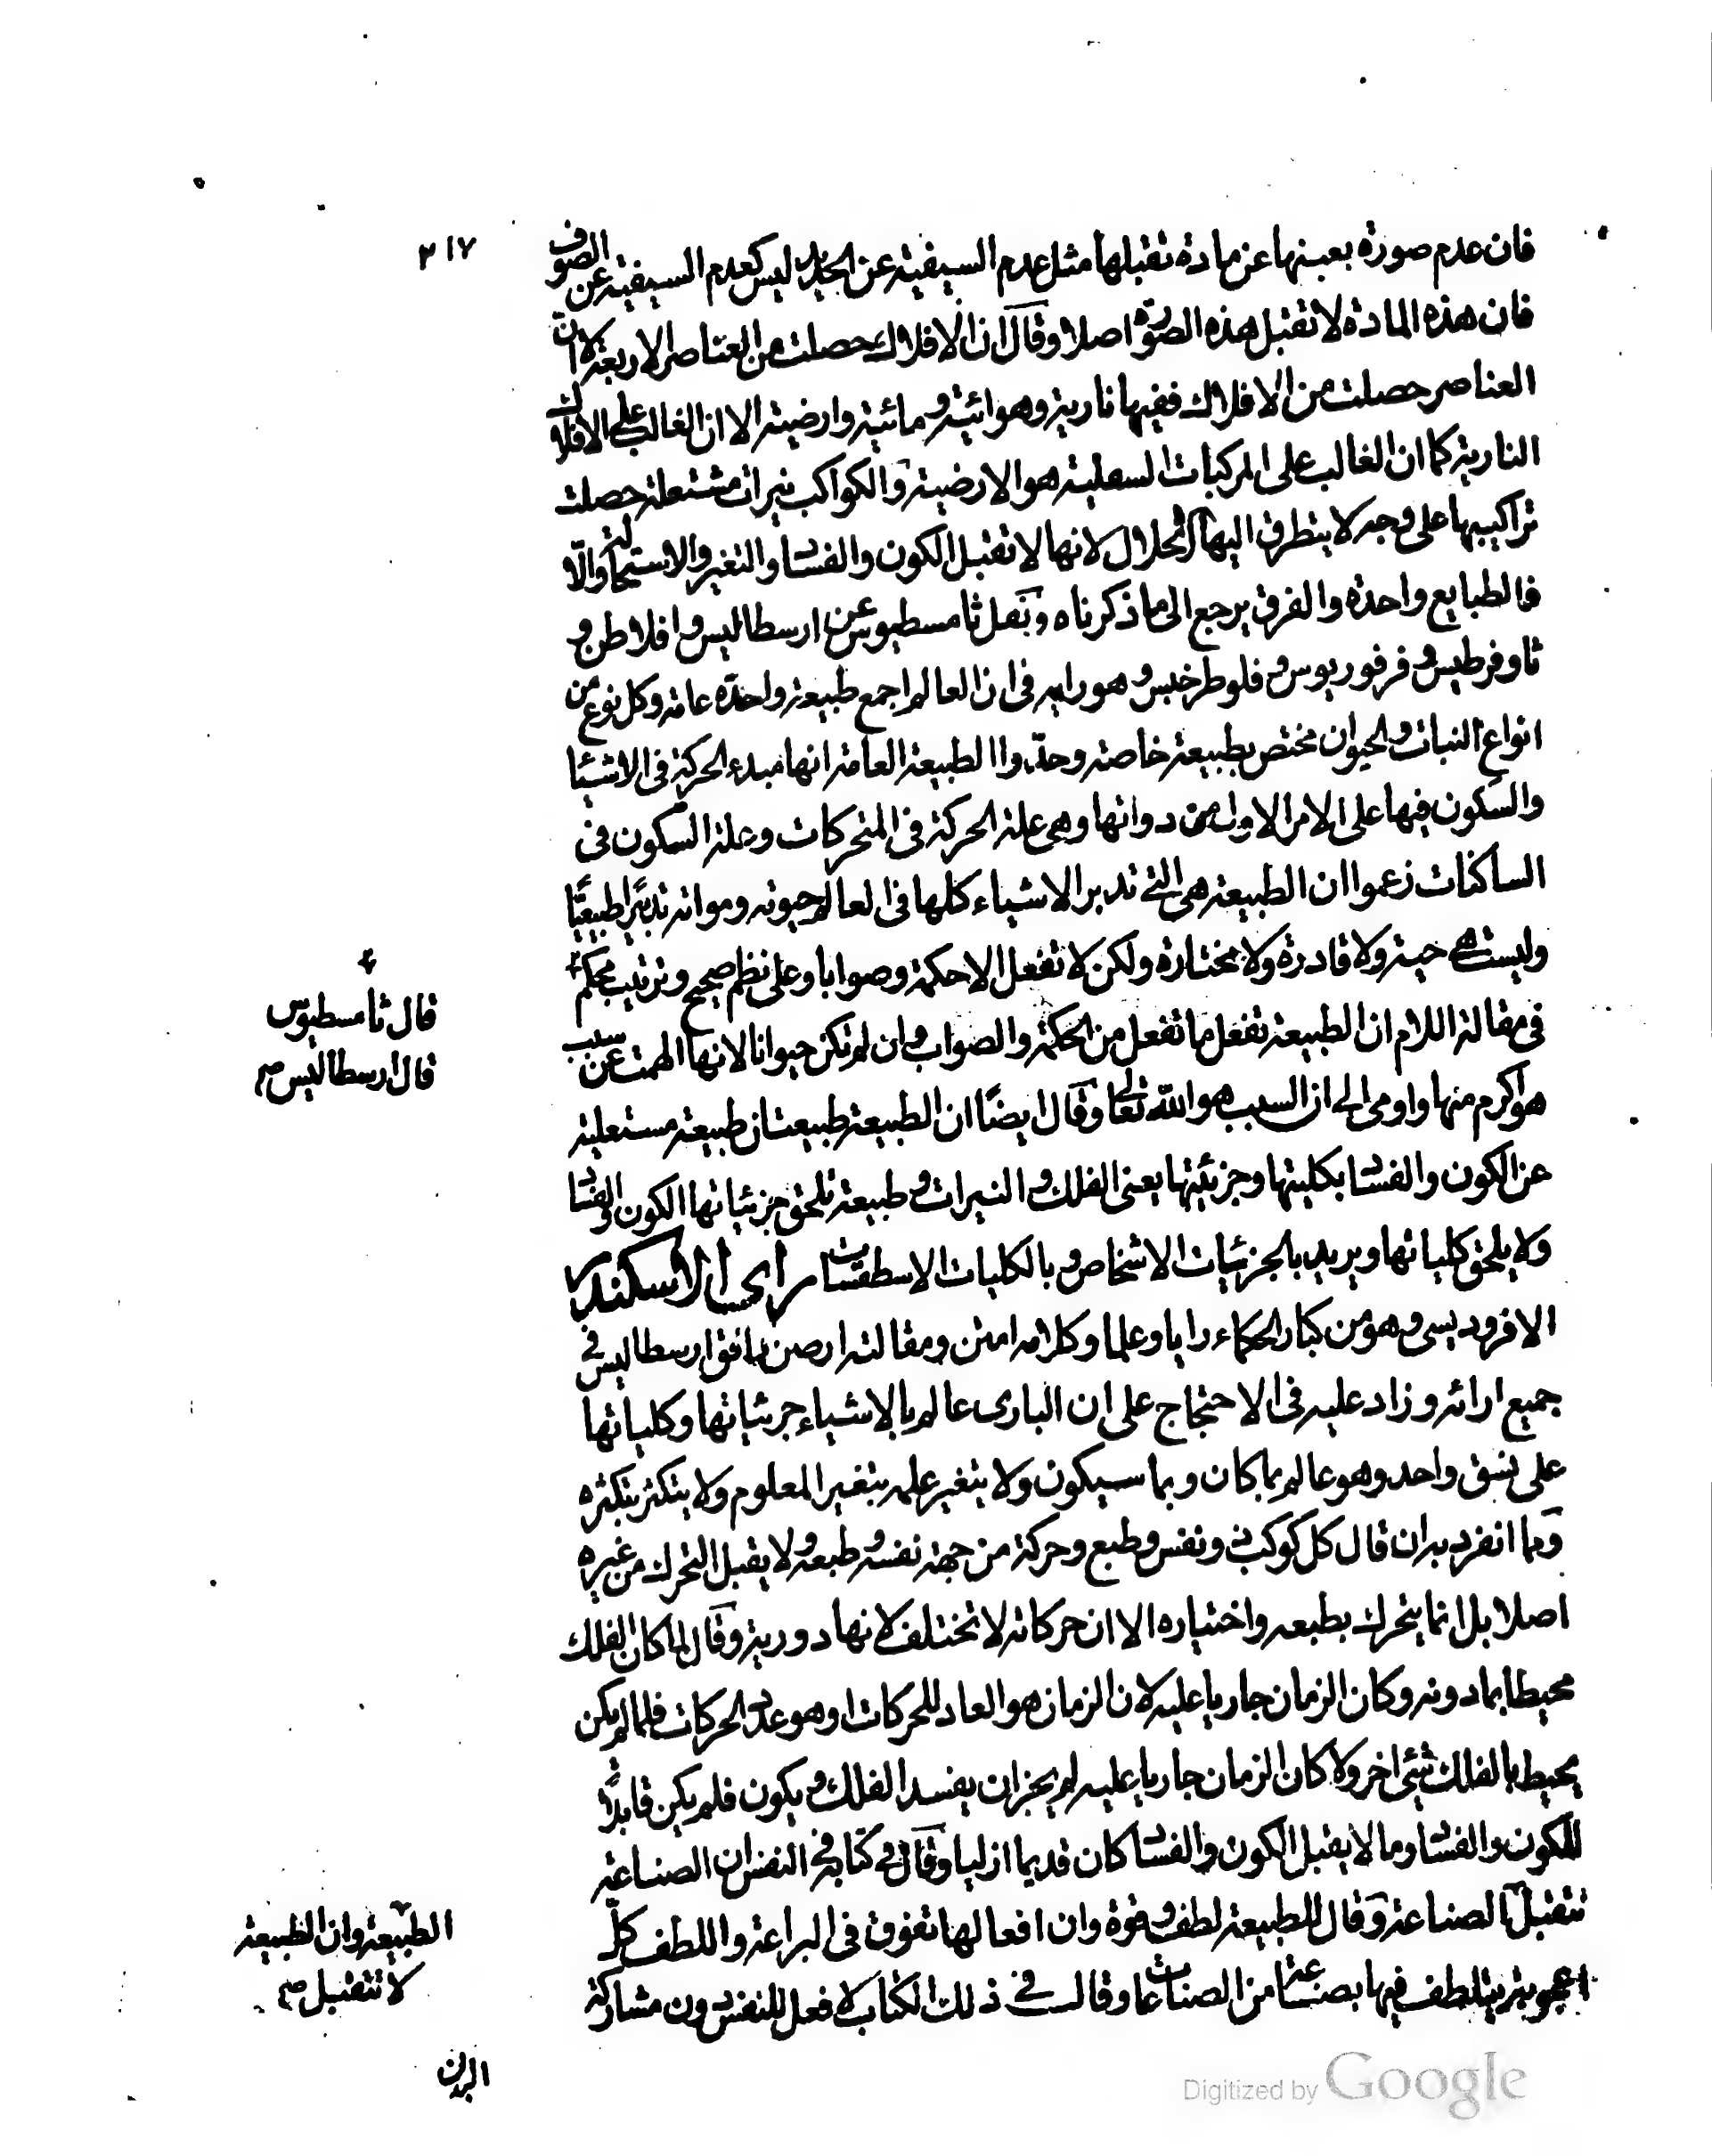 ٢١٧
فان عدم صورة بعينها عن مادة تقبلها مثل عدم السيفية عن الحديد ليس كعدم السيفية عن الصوف
فان هذه المادة لا تقبل هذه الصورة اصلا وقال ان الافلاك حصلت من العناصر الاربعة لا ان
العناصر حصلت من الافلاك ففيها نارية وهوائية ومائية وارضية الا ان الغالب على الافلاك
النارية كما ان الغالب على المركبات السفلية هو الارضية والكواكب نيرات مشتعلة حصلت
تراكيبها على وجه لا يتطرق اليها الانحلال لانها لا تقبل الكون والفساد والتغير والاستحالة والا
فالطبايع واحدة والفرق يرجع الى ما ذكرناه ونقل ثامسطيوس عن ارسطاليس وافلاطن و
ثاوفرطيس وفرفوريوس وفلوطرخيس وهو رايه في ان العالم اجمع طبيعة واحدة عامة وكل نوع من
انواع النبات والحيوان مختص بطبيعة خاصة وحدوا الطبيعة العامة انها مبدء الحركة في الاشيئا
والسكون فيها على الامر الاول من دواتها وهي علة الحركة في المتحركات وعلة السكون في
الساكنات زعموا ان الطبيعة هي التي تدبر الاشياء كلها في العالم حيوته ومواته تدبيرا طبيعيا
وليست هي حية ولا قادرة ولا مختارة ولكن لا تفعل الا حكمة وصوابا وعلى نظم صحيح وترتيب محكم
قال ثامسطيوس
قال ارسطاليس صح
في مقالة اللام ان الطبيعة تفعل ما تفعل من الحكمة والصواب وان لم تكن حيوانا لانها الهمت عن سبب
هو اكرم منها واومى الى ان السبب هو الله تعالى وقال ايضا ان الطبيعة طبيعتان طبيعة مستعلية
عن الكون والفساد بكليتها وجزئيتها يعني الفلك والنيرات وطبيعة تلحق جزئياتها الكون والفساد
ولا يلحق كلياتها ويريد بالجزئيات الاشخاص وبالكليات الاسطقسات راى الاسكندر
الافروديسى وهو من كبار الحكماء رايا وعلما وكلامه امتن ومقالته ارصن وافق ارسطاليس في
جميع ارائه وزاد عليه في الاحتجاج على ان البارى عالم بالاشياء جزئياتها وكلياتها
على نسق واحد وهو عالم بما كان وبما سيكون ولا يتغير علمه بتغير المعلوم ولا يتكثر بتكثره
ومما انفرد به ان قال كل كوكب ذو نفس وطبع وحركة من جهة نفسه وطبعه ولا يقبل التحرك من غيره
اصلا بل انما يتحرك بطبعه واختياره الا ان حركاته لا تختلف لانها دورية وقال لما كان الفلك
محيطا بما دونه وكان الزمان جاريا عليه لان الزمان هو العاد للحركات او هو عدد الحركات فلما لم يكن
يحيط بالفلك شئ اخر ولا كان الزمان جاريا عليه لم يجز ان يفسد الفلك ويكون فلم يكن قابلا
للكون والفساد وما لا يقبل الكون والفساد كان قديما ازليا وقال في كتابه في النفس ان الصناعة
تتقبل الطبيعة وان الطبيعة
لا تتقبل صح
الصناعة وقال للطبيعة لطف وقوة وان افعالها تفوق في البراعة واللطف كل
اعجوبة يتلطف فيها بصناعة من الصناعات وقال في ذلك الكتاب لا فعل للنفس دون مشاركة
البدن
Digitized by Google